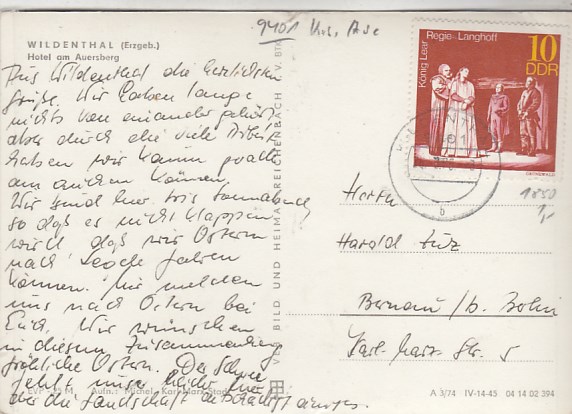 WILDENTHAL (Erzgeb.)
Hotel am Auersberg
9401
Aus Wildenthal die herzlichsten
Grüße. Wir haben lange
nichts von einander gehört
aber durch die viele Arbeit
haben wir kaum
Wir sind hier bis Sonnabend
so daß es nicht klappen
wird daß wir Ostern
nach fahren
können. Wir melden
uns nach Ostern bei
Euch. Wir wünschen
in diesem Zusammenhang
fröhliche Ostern. Der Schnee
fehlt uns leider hier
der die Landschaft
König Lear
Regie: Langhoff
10
DDR
b
1850
Herrn
Harald
Bernau / b. Berlin
Karl-Marx-Str. 5
BILD UND HEIMAT REICHENBACH
A 3/74 IV-14-45 04 14 02 394